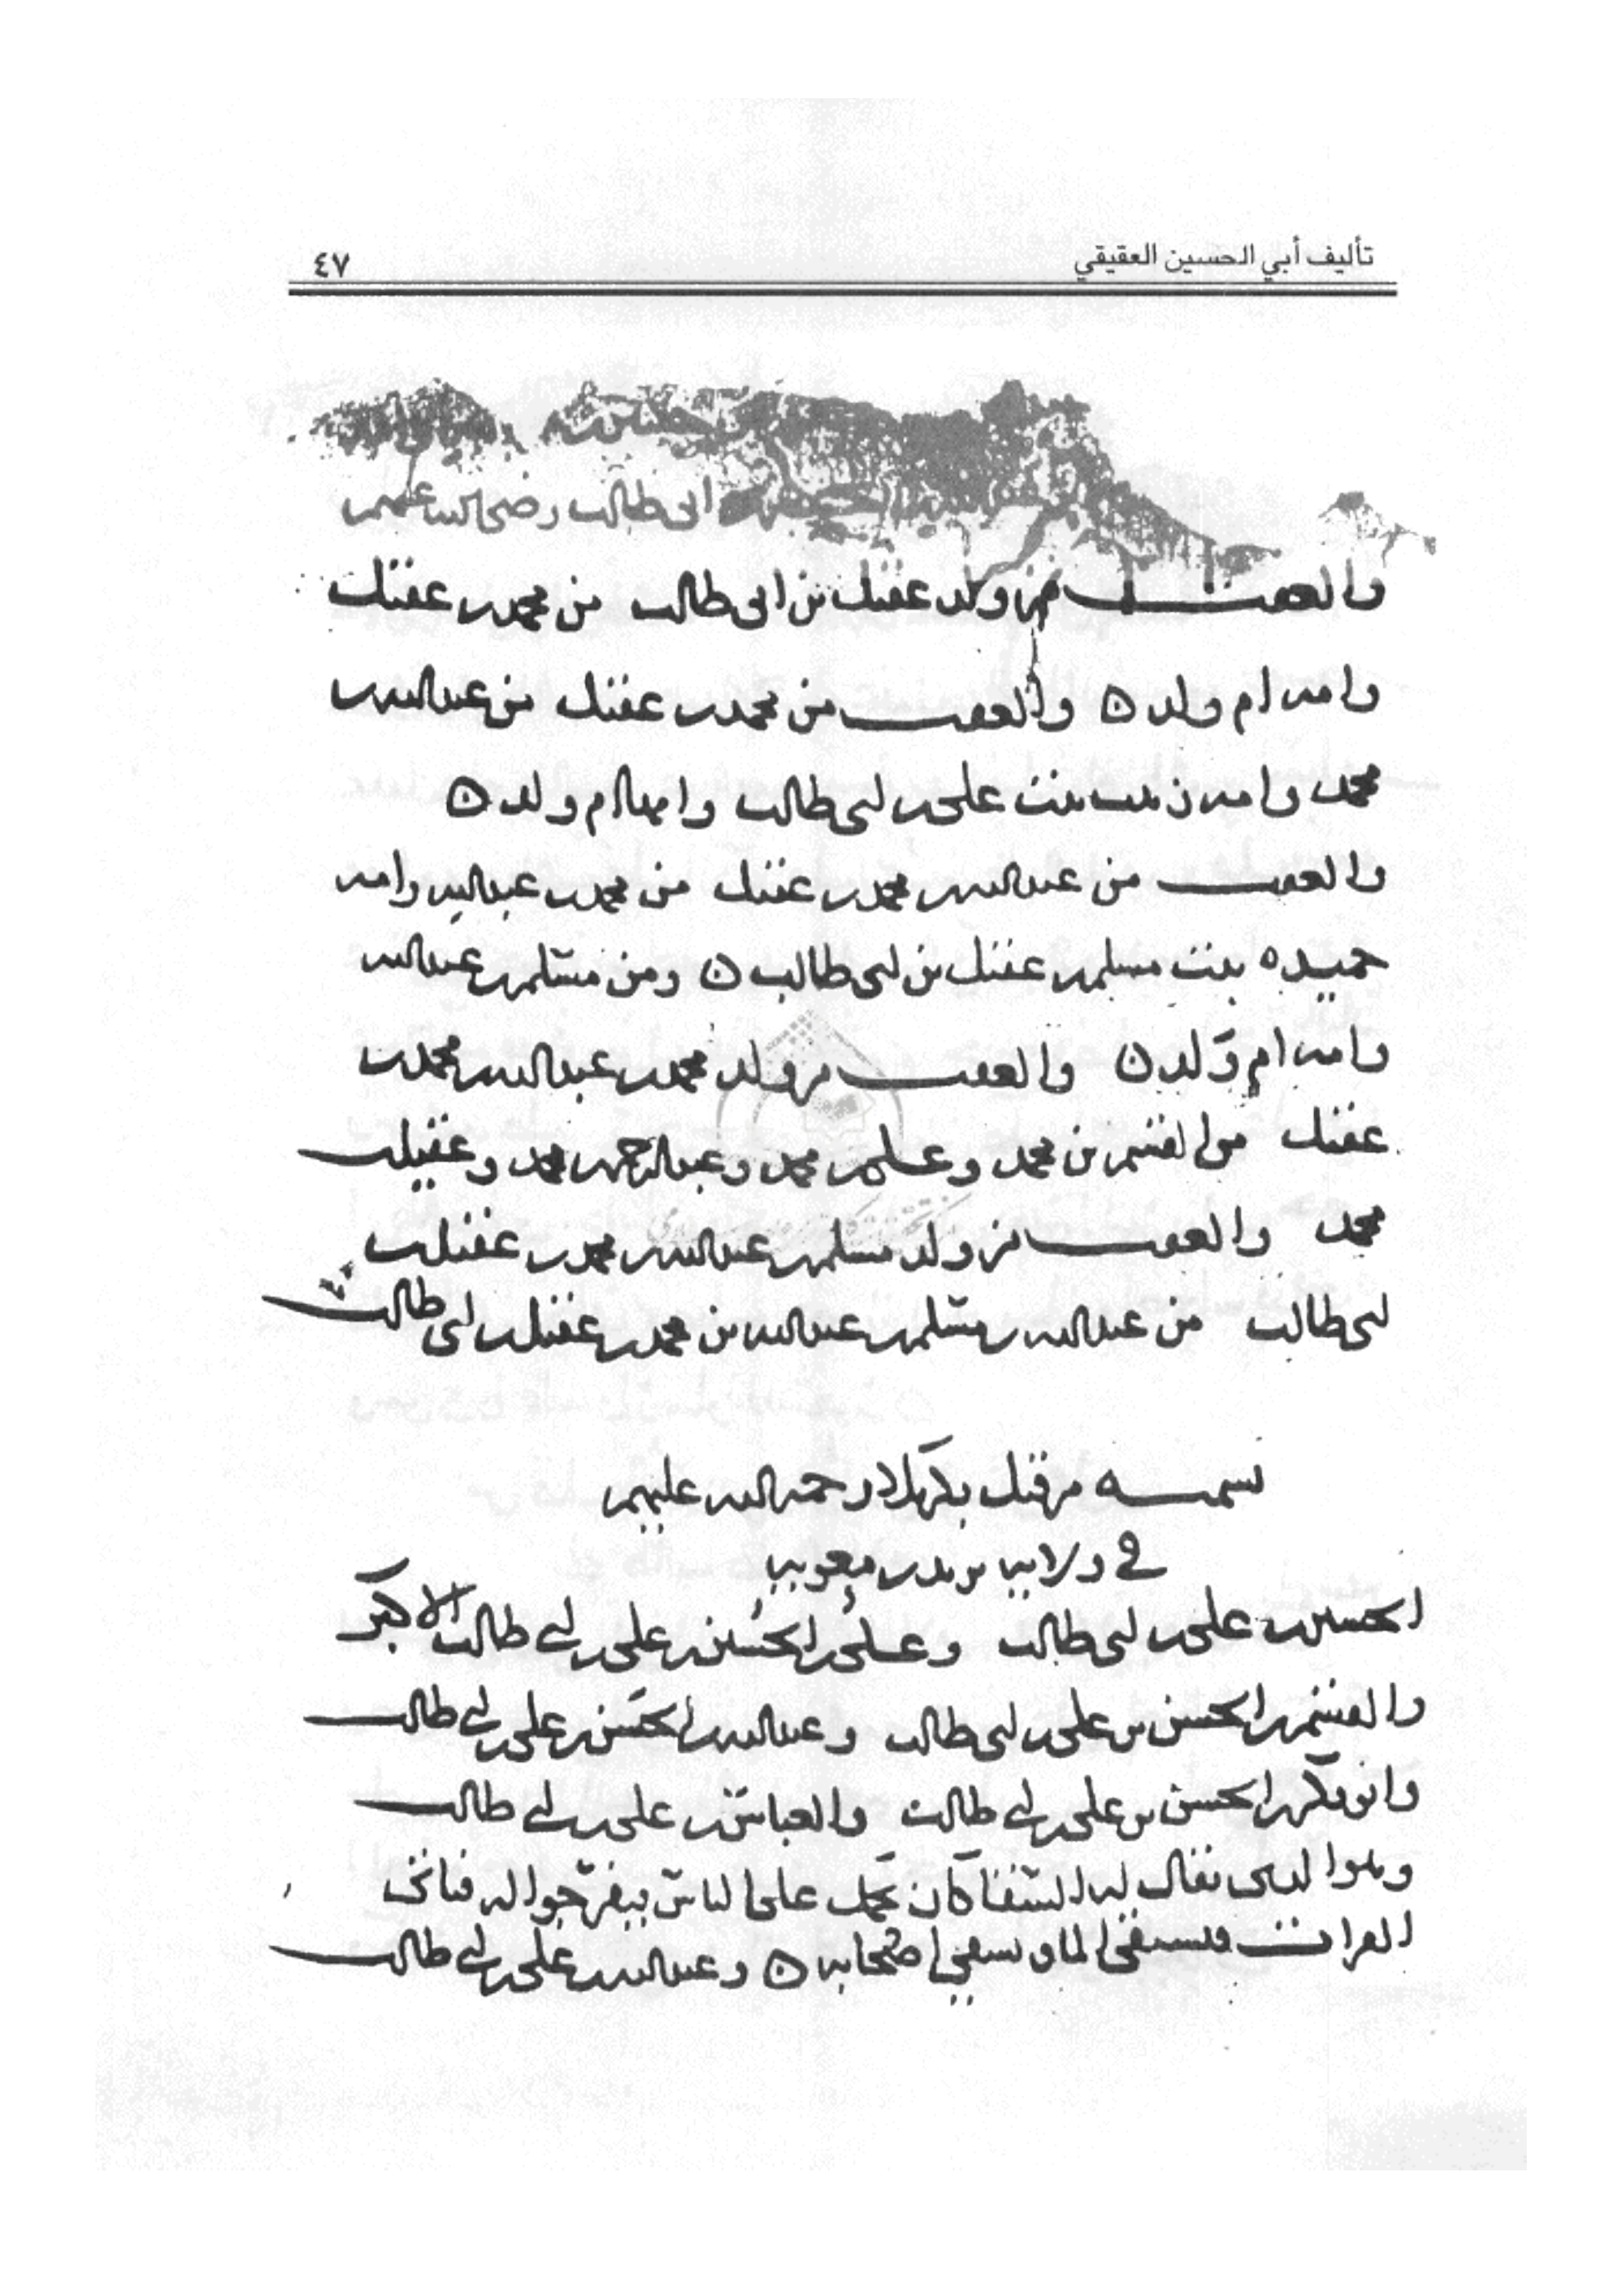 تأليف أبي الحسين العقيقي ٤٧
ابى طالب رضى الله عنهم
والعقب من ولد عقيل بن ابى طالب من محمد بن عقيل
وامه ام ولد ه والعقب من محمد بن عقيل من عبدالله بن
محمد وامه زينب بنت على بن ابى طالب وامها ام ولد ه
والعقب من عبدالله بن محمد بن عقيل من محمد بن عبدالله وامه
حميده بنت مسلم بن عقيل بن ابى طالب ه ومن مسلم بن عبدالله
وامه ام ولد ه والعقب من ولد محمد بن عبدالله بن محمد بن
عقيل من القسم بن محمد وعلى بن محمد وعبدالرحمن بن محمد وعقيل بن
محمد والعقب من ولد مسلم بن عبدالله بن محمد بن عقيل بن
ابى طالب من عبدالله بن مسلم بن عبدالله بن محمد بن عقيل بن ابى طالب
تسميه من قتل بكربلا رحمه الله عليهم
فى ولايه يزيد بن معويه
الحسين بن على بن ابى طالب وعلى بن الحسين بن على بن ابى طالب الاكبر
والقسم بن الحسن بن على بن ابى طالب وعبدالله بن الحسن بن على بن ابى طالب
وابو بكر بن الحسن بن على بن ابى طالب والعباس بن على بن ابى طالب
وهو الذى يقال له السقا كان يحمل على الناس فيفرجوا له فياتى
الفرات فيستقى الما ويسقى اصحابه ه وعبدالله بن على بن ابى طالب